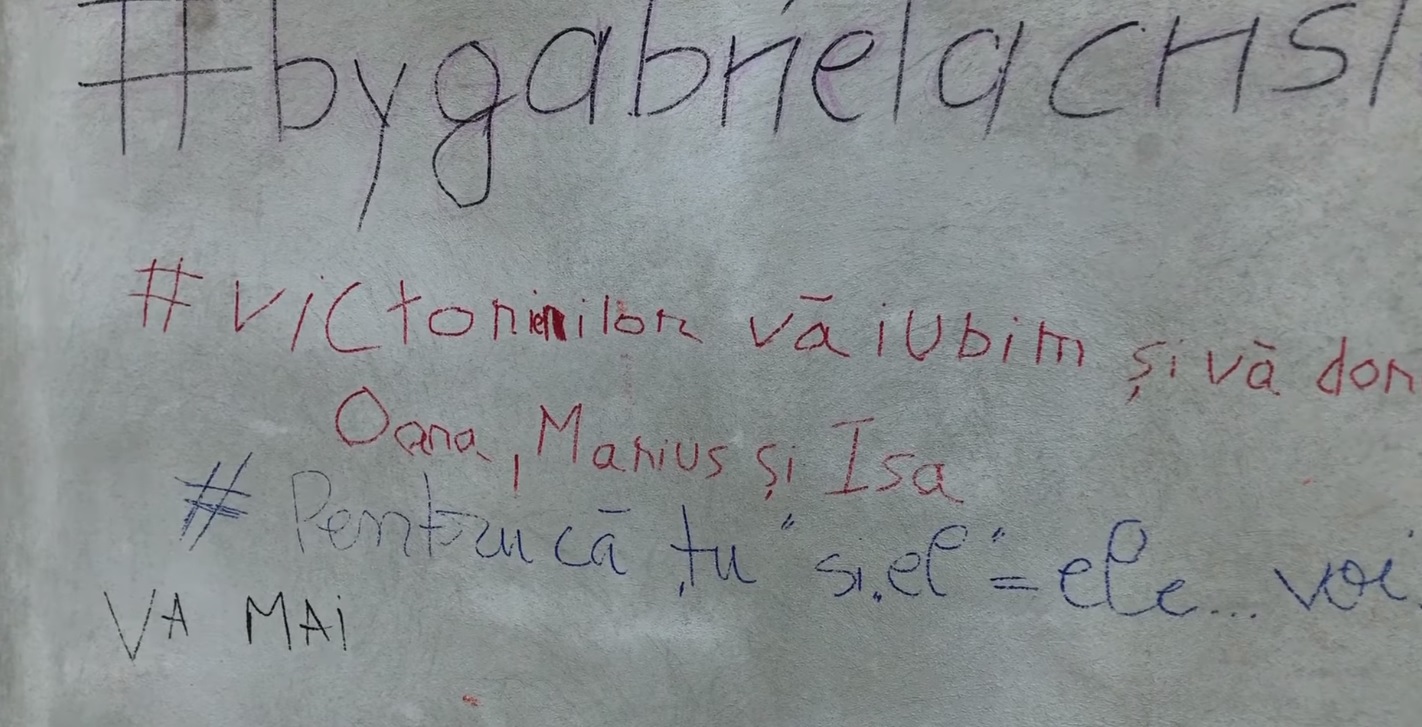 #bygabrielacrisl
#victoriei​nilor vă iubim și vă dor
Oana, Marius și Isa
# Pentrucă tu "si.el" = ele... voi.
VA MAi